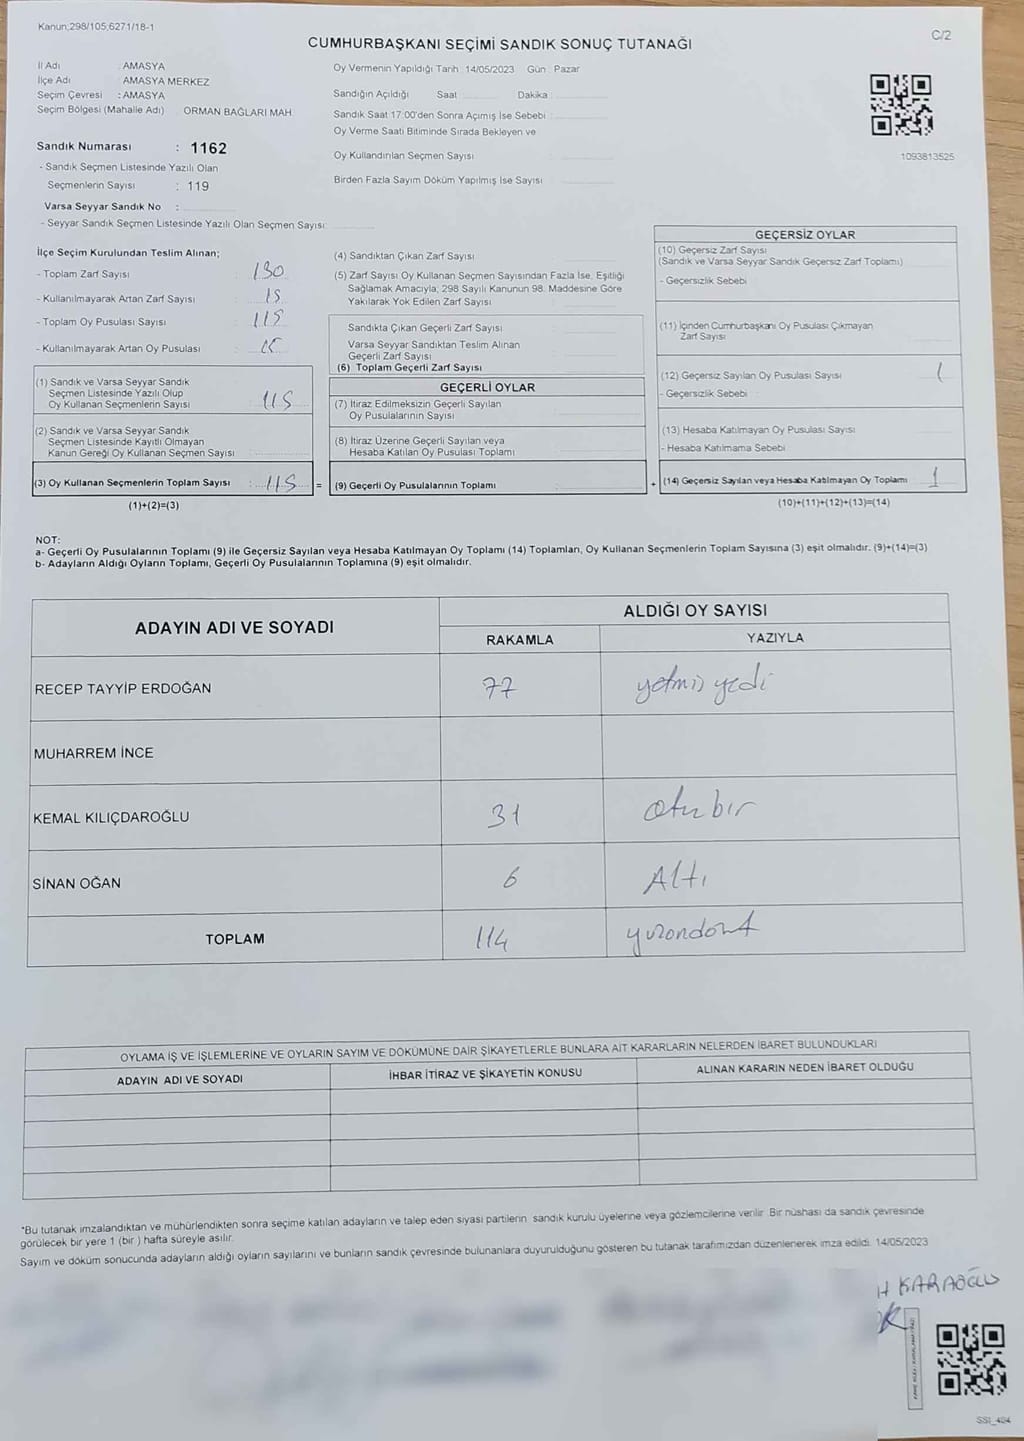 Kanun;298/105;6271/18-1
C/2
CUMHURBAŞKANI SEÇİMİ SANDIK SONUÇ TUTANAĞI
İl Adı : AMASYA
İlçe Adı : AMASYA MERKEZ
Seçim Çevresi : AMASYA
Seçim Bölgesi (Mahalle Adı) ORMAN BAĞLARI MAH.
Sandık Numarası : 1162
- Sandık Seçmen Listesinde Yazılı Olan
Seçmenlerin Sayısı : 119
Varsa Seyyar Sandık No :
- Seyyar Sandık Seçmen Listesinde Yazılı Olan Seçmen Sayısı:
Oy Vermenin Yapıldığı Tarih : 14/05/2023 Gün : Pazar
Sandığın Açıldığı Saat Dakika
Sandık Saat 17:00'den Sonra Açımış İse Sebebi :
Oy Verme Saati Bitiminde Sırada Bekleyen ve
Oy Kullandırılan Seçmen Sayısı :
Birden Fazla Sayım Döküm Yapılmış İse Sayısı :
1093813525
İlçe Seçim Kurulundan Teslim Alınan;
- Toplam Zarf Sayısı : 130
- Kullanılmayarak Artan Zarf Sayısı : 15
- Toplam Oy Pusulası Sayısı : 115
- Kullanılmayarak Artan Oy Pusulası :
(1) Sandık ve Varsa Seyyar Sandık
Seçmen Listesinde Yazılı Olup
Oy Kullanan Seçmenlerin Sayısı : 115
(2) Sandık ve Varsa Seyyar Sandık
Seçmen Listesinde Kayıtlı Olmayan
Kanun Gereği Oy Kullanan Seçmen Sayısı :
(3) Oy Kullanan Seçmenlerin Toplam Sayısı : 115 =
(1)+(2)=(3)
(4) Sandıktan Çıkan Zarf Sayısı :
(5) Zarf Sayısı Oy Kullanan Seçmen Sayısından Fazla İse, Eşitliği
Sağlamak Amacıyla; 298 Sayılı Kanunun 98. Maddesine Göre
Yakılarak Yok Edilen Zarf Sayısı :
Sandıkta Çıkan Geçerli Zarf Sayısı :
Varsa Seyyar Sandıktan Teslim Alınan
Geçerli Zarf Sayısı :
(6) Toplam Geçerli Zarf Sayısı :
GEÇERLİ OYLAR
(7) İtiraz Edilmeksizin Geçerli Sayılan
Oy Pusulalarının Sayısı :
(8) İtiraz Üzerine Geçerli Sayılan veya
Hesaba Katılan Oy Pusulası Toplamı :
(9) Geçerli Oy Pusulalarının Toplamı : +
GEÇERSİZ OYLAR
(10) Geçersiz Zarf Sayısı
(Sandık ve Varsa Seyyar Sandık Geçersiz Zarf Toplamı) :
- Geçersizlik Sebebi :
(11) İçinden Cumhurbaşkanı Oy Pusulası Çıkmayan
Zarf Sayısı :
(12) Geçersiz Sayılan Oy Pusulası Sayısı : 1
- Geçersizlik Sebebi :
(13) Hesaba Katılmayan Oy Pusulası Sayısı :
- Hesaba Katılmama Sebebi :
(14) Geçersiz Sayılan veya Hesaba Katılmayan Oy Toplamı : 1
(10)+(11)+(12)+(13)=(14)
NOT:
a- Geçerli Oy Pusulalarının Toplamı (9) ile Geçersiz Sayılan veya Hesaba Katılmayan Oy Toplamı (14) Toplamları, Oy Kullanan Seçmenlerin Toplam Sayısına (3) eşit olmalıdır. (9)+(14)=(3)
b- Adayların Aldığı Oyların Toplamı, Geçerli Oy Pusulalarının Toplamına (9) eşit olmalıdır.
ADAYIN ADI VE SOYADI
ALDIĞI OY SAYISI
RAKAMLA YAZIYLA
RECEP TAYYİP ERDOĞAN 77 yetmiş yedi
MUHARREM İNCE
KEMAL KILIÇDAROĞLU 31 otuzbir
SİNAN OĞAN 6 Altı
TOPLAM 114 yüzondört
OYLAMA İŞ VE İŞLEMLERİNE VE OYLARIN SAYIM VE DÖKÜMÜNE DAİR ŞİKAYETLERLE BUNLARA AİT KARARLARIN NELERDEN İBARET BULUNDUKLARI
ADAYIN ADI VE SOYADI İHBAR İTİRAZ VE ŞİKAYETİN KONUSU ALINAN KARARIN NEDEN İBARET OLDUĞU
*Bu tutanak imzalandıktan ve mühürlendikten sonra seçime katılan adayların ve talep eden siyasi partilerin sandık kurulu üyelerine veya gözlemcilerine verilir. Bir nüshası da sandık çevresinde
görülecek bir yere 1 (bir ) hafta süreyle asılır.
Sayım ve döküm sonucunda adayların aldığı oyların sayılarını ve bunların sandık çevresinde bulunanlara duyurulduğunu gösteren bu tutanak tarafımızdan düzenlenerek imza edildi. 14/05/2023
H KARAOĞLU
SS1_404